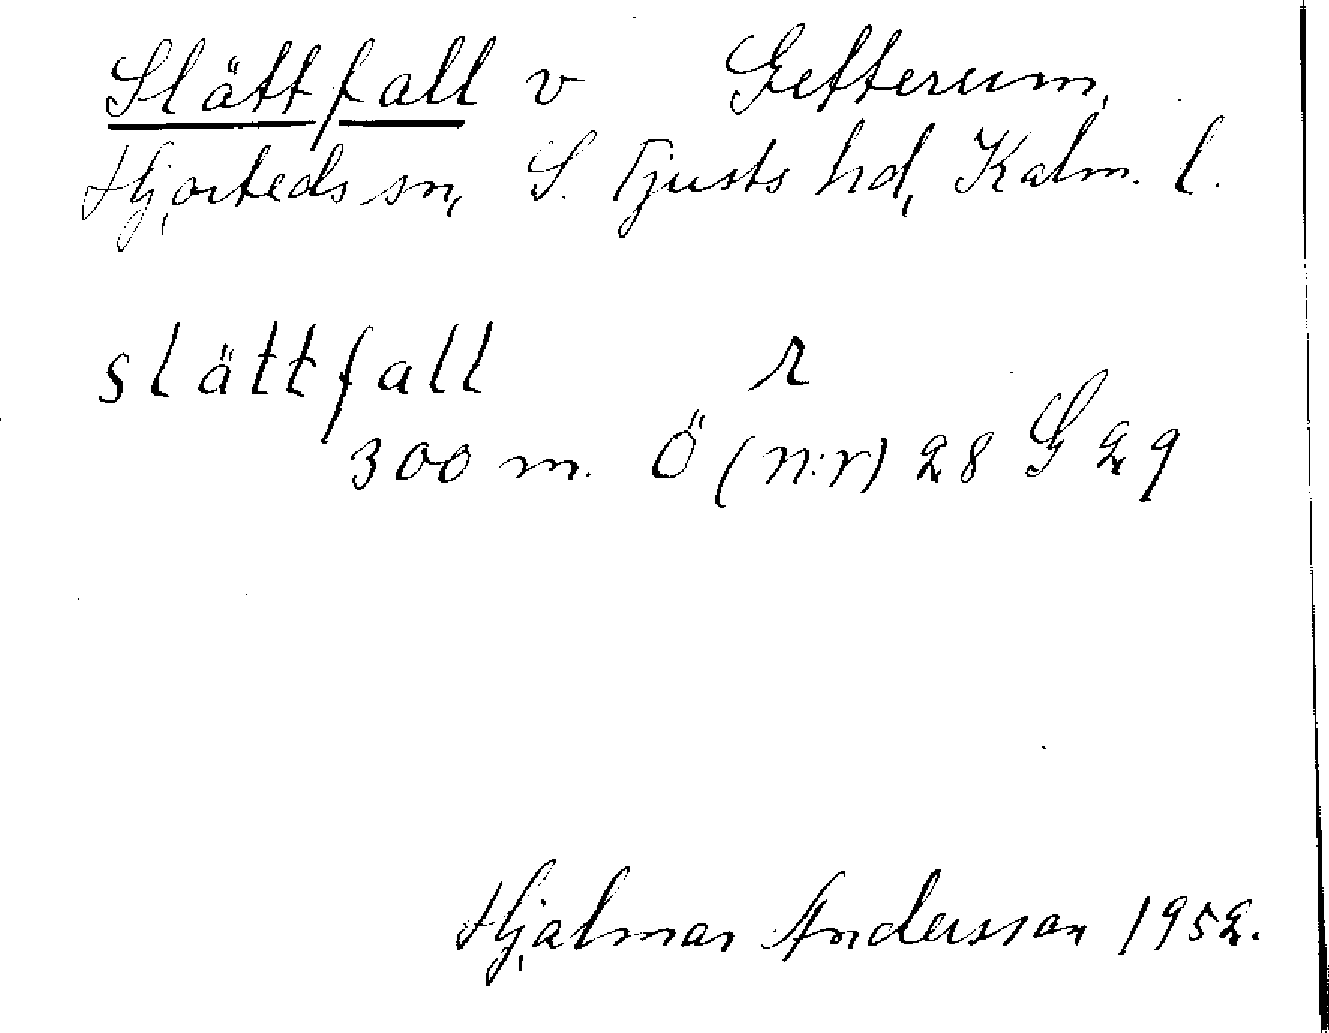 Slättfall v Gefterum,
Hjorteds sn, S. Tjusts hd, Kalm. l.
slättfall r
300 m. Ö (n:r) 28 G 29
Hjalmar Andersson 1952.